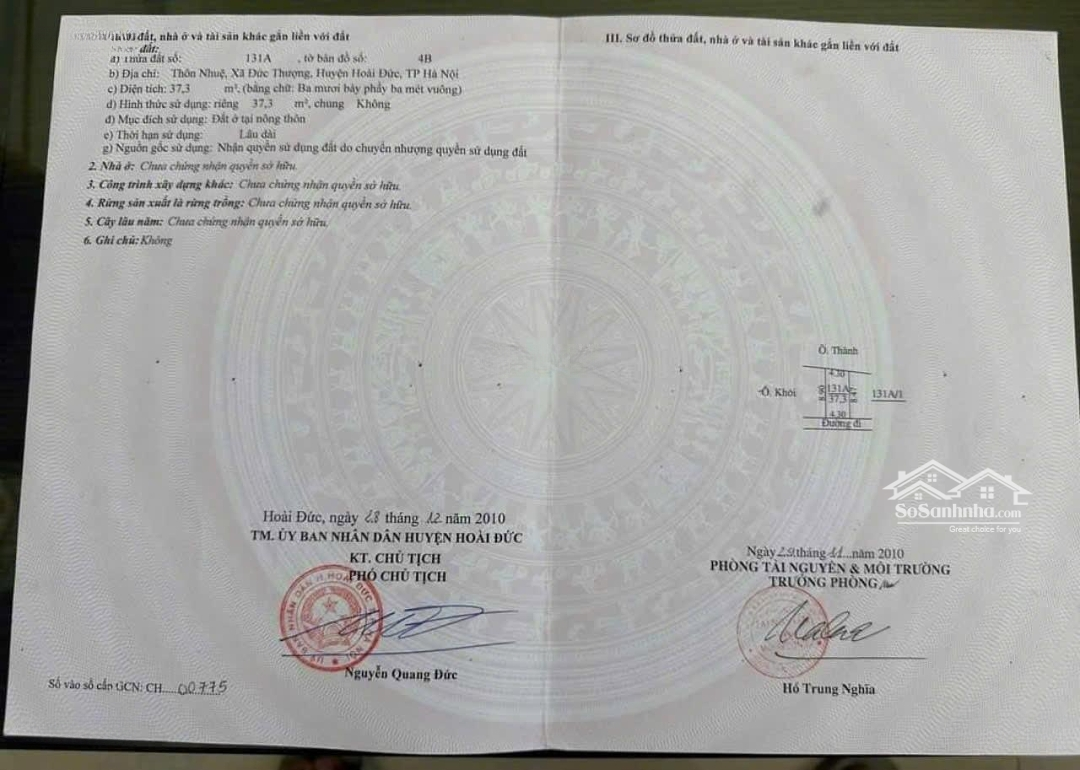 đất, nhà ở và tài sản khác gắn liền với đất
đất:
a) Thửa đất số: 131A , tờ bản đồ số: 4B
b) Địa chỉ: Thôn Nhuệ, Xã Đức Thượng, Huyện Hoài Đức, TP Hà Nội
c) Diện tích: 37,3 m², (bằng chữ: Ba mươi bảy phẩy ba mét vuông)
d) Hình thức sử dụng: riêng 37,3 m², chung Không
đ) Mục đích sử dụng: Đất ở tại nông thôn
e) Thời hạn sử dụng: Lâu dài
g) Nguồn gốc sử dụng: Nhận quyền sử dụng đất do chuyển nhượng quyền sử dụng đất
2. Nhà ở: Chưa chứng nhận quyền sở hữu.
3. Công trình xây dựng khác: Chưa chứng nhận quyền sở hữu.
4. Rừng sản xuất là rừng trồng: Chưa chứng nhận quyền sở hữu.
5. Cây lâu năm: Chưa chứng nhận quyền sở hữu.
6. Ghi chú: Không
Hoài Đức, ngày 28 tháng 12 năm 2010
TM. ỦY BAN NHÂN DÂN HUYỆN HOÀI ĐỨC
KT. CHỦ TỊCH
PHÓ CHỦ TỊCH
Nguyễn Quang Đức
Số vào sổ cấp GCN: CH.....00775
III. Sơ đồ thửa đất, nhà ở và tài sản khác gắn liền với đất
Ô. Thành
4.30
Ô. Khôi
131A
37,3
131A/1
4.30
Đường đi
SoSanhnha.com
Great choice for you
Ngày 29 tháng 11...năm 2010
PHÒNG TÀI NGUYÊN & MÔI TRƯỜNG
TRƯỞNG PHÒNG
Hồ Trung Nghĩa